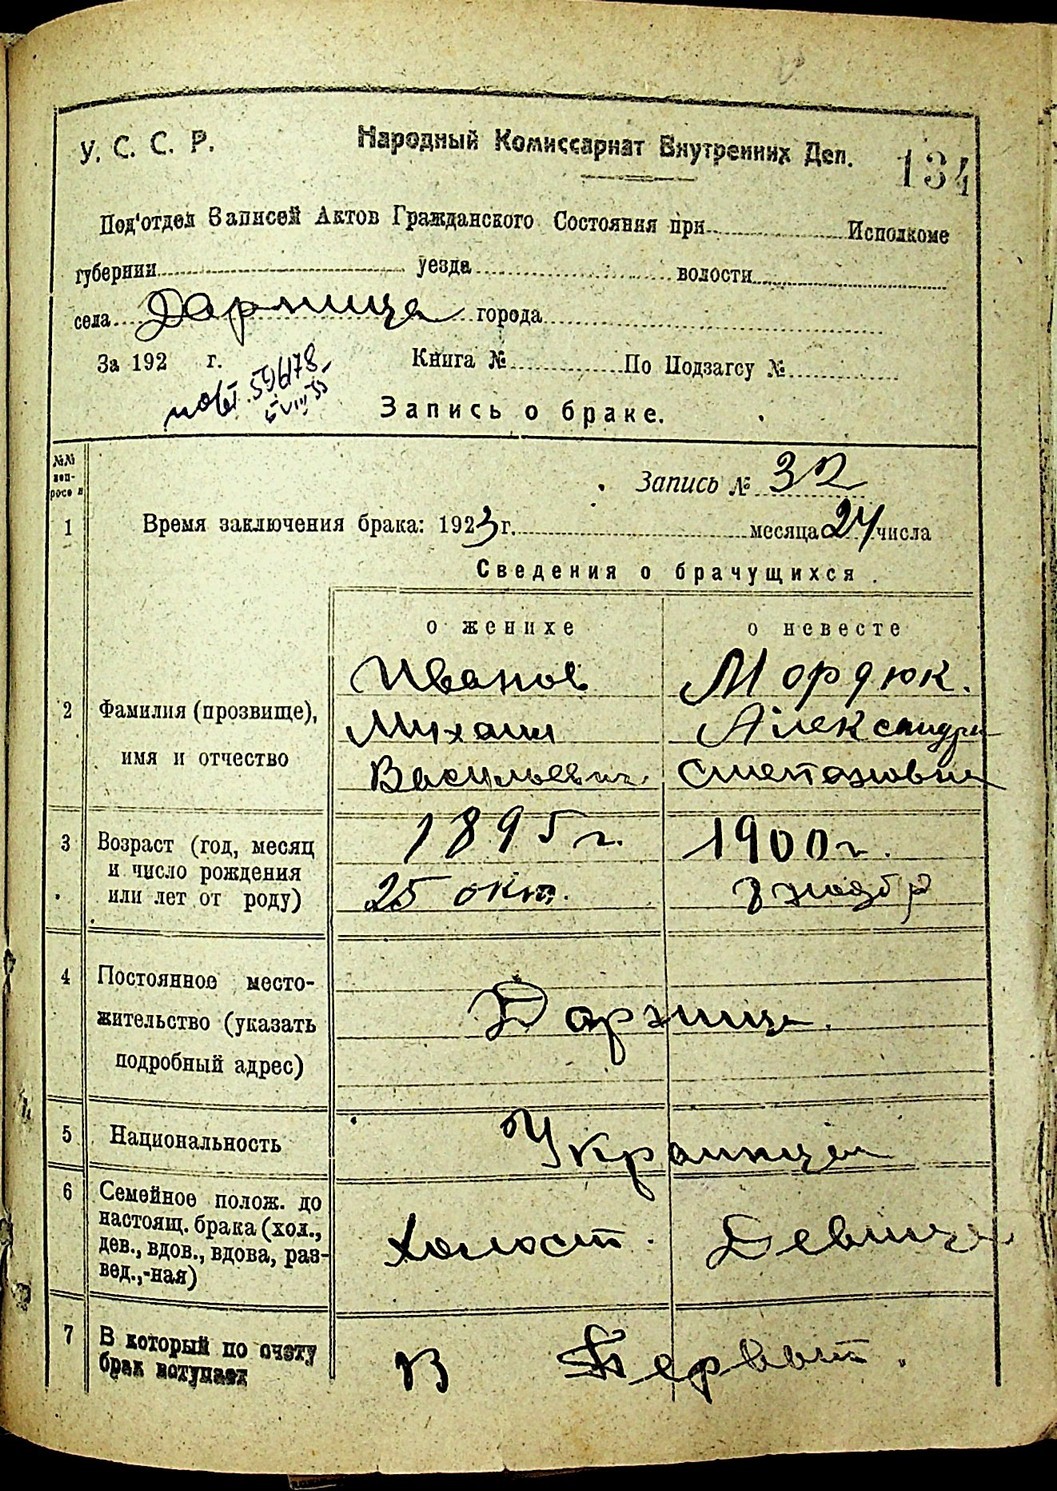 У. С. С. Р. Народный Комиссариат Внутренних Дел. 134
Под'отдел Записей Актов Гражданского Состояния при Исполкоме
губернии уезда волости
села Дарница города
За 192 г. Книга № По Подзагсу №
59678
Запись о браке.
№№ вопросов
Запись № 32
1 Время заключения брака: 1923 г. месяца 24 числа
Сведения о брачущихся.
о женихе о невесте
Иванов Мордюк.
2 Фамилия (прозвище), Михаил Александра
имя и отчество Васильевич Степановна
3 Возраст (год, месяц 1895 г. 1900 г.
и число рождения
или лет от роду) 25 окт. ноябр
4 Постоянное место-
жительство (указать Дарница.
подробный адрес)
5 Национальность Украинцы
6 Семейное полож. до
настоящ. брака (хол., Холост. Девица.
дев., вдов., вдова, раз-
вед.,-ная)
7 В который по счету В Первый.
брак вступает